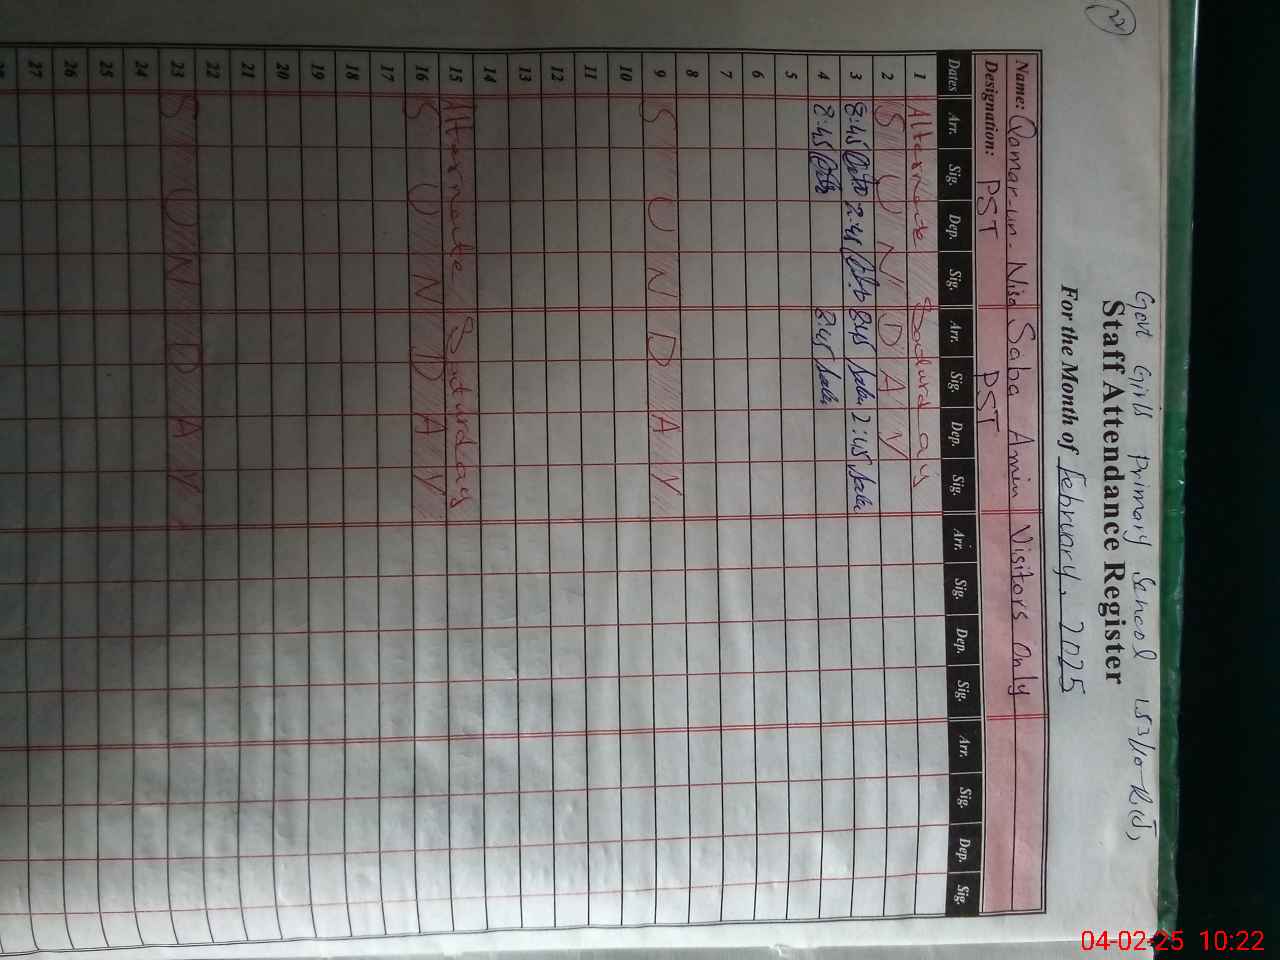 22
Govt Girls Primary School 153/10-R(J)
Staff Attendance Register
For the Month of February, 2025
Name: Qamar-un-Nisa Saba Amin Visitors Only
Designation: PST PST
Dates Arr. Sig. Dep. Sig. Arr. Sig. Dep. Sig. Arr. Sig. Dep. Sig. Arr. Sig. Dep. Sig.
1 Alternate Saturday
2 SUNDAY
3 8:45 2:45 8:45 Saba 2:45 Saba
4 8:45 8:45 Saba
5
6
7
8
9 SUNDAY
10
11
12
13
14
15 Alternate Saturday
16 SUNDAY
17
18
19
20
21
22
23 SUNDAY
24
25
26
27
04-02-25 10:22